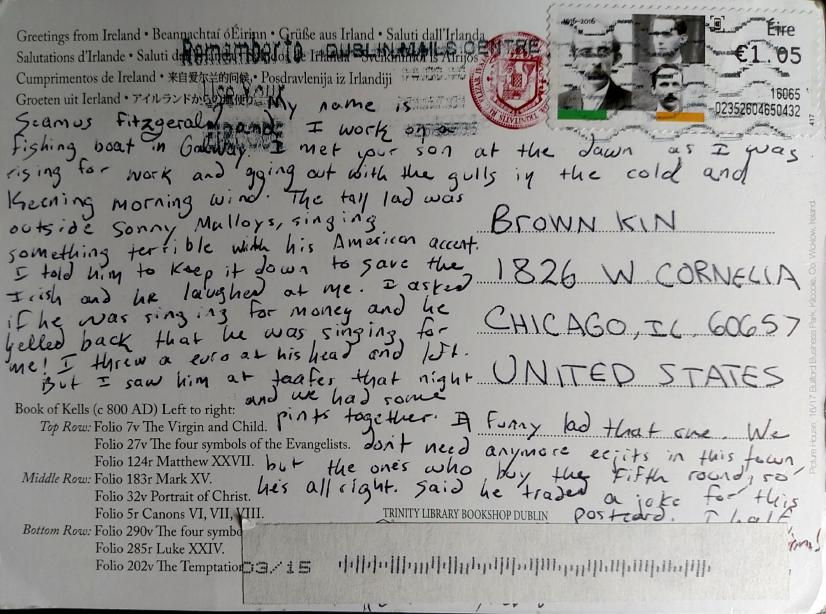 Greetings from Ireland • Beannachtaí óÉirinn • Grüße aus Irland • Saluti dall'Irlanda
Salutations d'Irlande • Saluti de Irlanda • Sveikinimai iš Airijos
Remember to DUBLIN MAILS CENTRE
Cumprimentos de Ireland • 来自爱尔兰的问候 • Posdravlenija iz Irlandiji
Use Your
Groeten uit Ierland • アイルランドからの My name is
1916-2016
Éire
€1.05
16065
02352604650432
417
Seamus Fitzgerald and I work on a
fishing boat in Galway. I met your son at the dawn as I was
rising for work and going out with the gulls in the cold and
keening morning wind. The tall lad was
outside Sonny Malloys, singing
something terrible with his American accent.
I told him to keep it down to save the
Irish and he laughed at me. I asked
if he was singing for money and he
yelled back that he was singing for
me! I threw a euro at his head and left.
But I saw him at taafes that night
and we had some
pints together. A funny lad that one. We
don't need anymore eejits in this town,
but the one's who buy the fifth round, so
he's all right. Said he traded a joke for this
postcard. I half
BROWN KIN
1826 W CORNELIA
CHICAGO, IL 60657
UNITED STATES
Book of Kells (c 800 AD) Left to right:
Top Row: Folio 7v The Virgin and Child.
Folio 27v The four symbols of the Evangelists.
Folio 124r Matthew XXVII.
Middle Row: Folio 183r Mark XV.
Folio 32v Portrait of Christ.
Folio 5r Canons VI, VII, VIII.
Bottom Row: Folio 290v The four symbo
Folio 285r Luke XXIV.
Folio 202v The Temptation
TRINITY LIBRARY BOOKSHOP DUBLIN
03/15